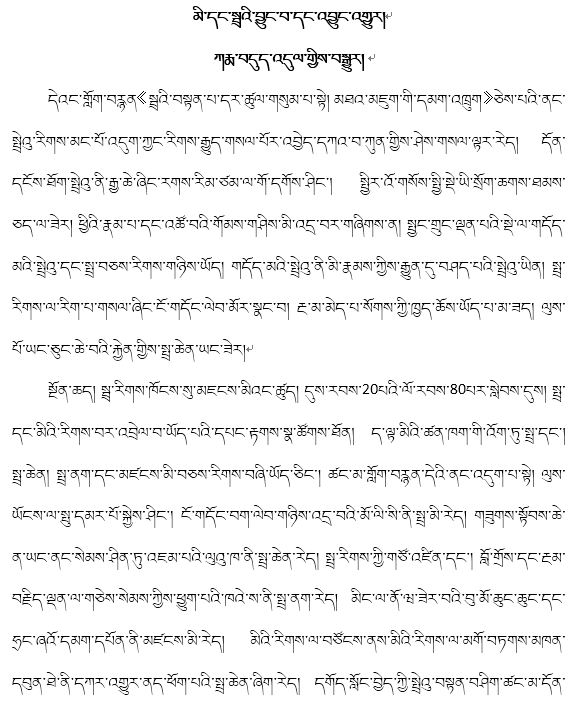 མི་དང་སྤྲའི་བྱུང་བ་དང་འབྱུང་འགྱུར།
ཀརྨ་བདུད་འདུལ་གྱིས་བསྒྱུར།
དེའང་གློག་བརྙན《སྤྲའི་བསྟན་པ་དར་ཚུལ་གསུམ་པ་སྟེ། མཐའ་མཇུག་གི་དམག་འཁྲུག》ཅེས་པའི་ནང་
སྤྲེའུ་རིགས་མང་པོ་འདུག་ཀྱང་རིགས་རྒྱུད་གསལ་པོར་འབྱེད་དཀའ་བ་ཀུན་གྱིས་ཤེས་གསལ་ལྟར་རེད། དོན་
དངོས་ཐོག་སྤྲེའུ་ནི་རྒྱ་ཆེ་ཞིང་རགས་རིམ་ཙམ་ལ་གོ་དགོས་ཤིང་། སྤྱིར་འོ་གསོས་སྤྱི་སྡེ་ཡི་སྲོག་ཆགས་ཐམས་
ཅད་ལ་ཟེར། ཕྱིའི་རྣམ་པ་དང་འཚོ་བའི་གོམས་གཤིས་མི་འདྲ་བར་གཞིགས་ན། སྤྱང་གྲུང་ལྡན་པའི་སྡེ་ལ་གདོད་
མའི་སྤྲེའུ་དང་སྤྲ་བཅས་རིགས་གཉིས་ཡོད། གདོད་མའི་སྤྲེའུ་ནི་མི་རྣམས་ཀྱིས་རྒྱུན་དུ་བཤད་པའི་སྤྲེའུ་ཡིན། སྤྲ་
རིགས་ལ་རིག་པ་གསལ་ཞིང་ངོ་གདོང་ལེབ་མོར་སྣང་བ། རྔ་མ་མེད་པ་སོགས་ཀྱི་ཁྱད་ཆོས་ཡོད་པ་མ་ཟད། ལུས་
པོ་ཡང་ཅུང་ཆེ་བའི་རྐྱེན་གྱིས་སྤྲ་ཆེན་ཡང་ཟེར།
སྔོན་ཆད། སྤྲ་རིགས་ཁོངས་སུ་མཇངས་མིའང་ཚུད། དུས་རབས་20པའི་ལོ་རབས་80པར་སླེབས་དུས། སྤྲ་
དང་མིའི་རིགས་བར་འབྲེལ་བ་ཡོད་པའི་དཔང་རྟགས་སྣ་ཚོགས་ཐོན། ད་ལྟ་མིའི་ཚན་ཁག་གི་འོག་ཏུ་སྤྲ་དང་།
སྤྲ་ཆེན། སྤྲ་ནག་དང་མཛངས་མི་བཅས་རིགས་བཞི་ཡོད་ཅིང་། ཚང་མ་གློག་བརྙན་དེའི་ནང་འདུག་པ་སྟེ། ལུས་
ཡོངས་ལ་སྤུ་དམར་པོ་སྐྱེས་ཤིང་། ངོ་གདོང་བག་ལེབ་གཉིས་འདྲ་བའི་མོ་ལི་སི་ནི་སྤྲ་མི་རེད། གཟུགས་སྟོབས་ཆེ་
ན་ཡང་ནང་སེམས་ཤིན་ཏུ་འཇམ་པའི་ལུའུ་ཁ་ནི་སྤྲ་ཆེན་རེད། སྤྲ་རིགས་ཀྱི་གཙོ་འཛིན་དང་། བློ་གྲོས་དང་རྔམ་
བརྗིད་ལྡན་ལ་གཅེས་སེམས་ཀྱིས་ཕྱུག་པའི་ཁའེ་ས་ནི་སྤྲ་ནག་རེད། མིང་ལ་ནོ་ཝ་ཟེར་བའི་བུ་མོ་ཆུང་ཆུང་དང་
ཧྲང་ཞའོ་དམག་དཔོན་ནི་མཛངས་མི་རེད། མིའི་རིགས་ལ་བཙོངས་ནས་མིའི་རིགས་ལ་མགོ་བཏགས་མཁན་
དབུན་ཐེ་ནི་དཀར་འགྱུར་ནད་ཕོག་པའི་སྤྲ་ཆེན་ཞིག་རེད། དགོད་སློང་བྱེད་ཀྱི་སྤྲེའུ་བསྟན་བཤིག་ཚང་མ་དོན་